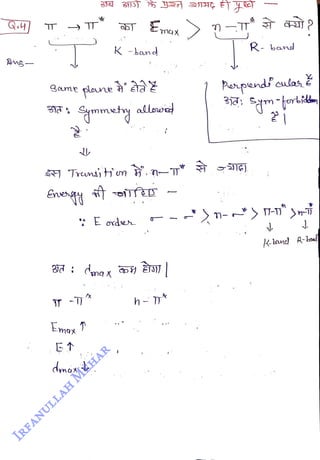 अब आगे के प्रश्न ज्यादा ही पूछते —
Q.4) π → π* का Emax > n — π* से क्यों?
K - band R - band
Ans —
same plane में होते हैं
अतः Symmetry allowed
है
Perpendicular है
अतः Sym - forbidden
है |
⇓
इस Transition में n — π* से ज्यादा
Energy भी —
∵ E order σ — σ* > n - σ* > π-π* > n-π*
K-band R-band
अतः dmax कम होगा |
π - π* n - π*
Emax ↑
E ↑
dmax ↓
IRFANULLAH MEHAR